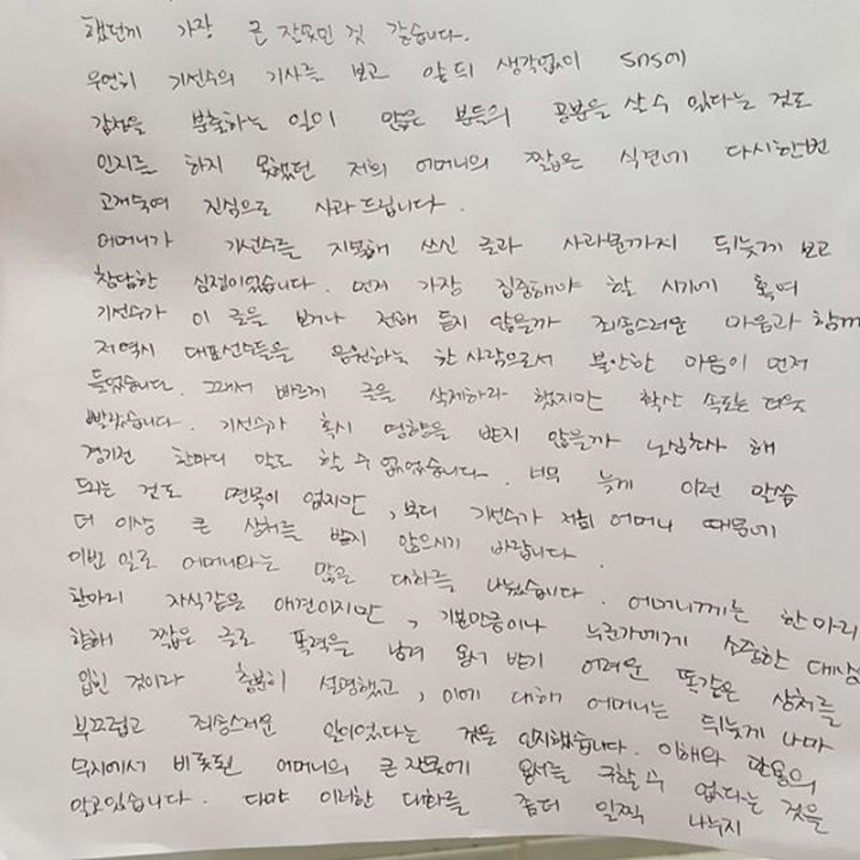 했던게 가장 큰 잘못인 것 같습니다.
우연히 기선수의 기사를 보고 앞뒤 생각없이 SNS에
감정을 분출하는 일이 많은 분들의 공분을 살 수 있다는 것도
인지를 하지 못했던 저희 어머니의 짧은 식견에 다시한번
고개숙여 진심으로 사과드립니다.
어머니가 기선수를 지목해 쓰신 글과 사과문까지 뒤늦게 보고
참담한 심정이었습니다. 먼저 가장 집중해야 할 시기에 혹여
기선수가 이 글을 보거나 전해 듣지 않을까 죄송스러운 마음과 함께
저 역시 대표선수들을 응원하는 한 사람으로서 불안한 마음이 먼저
들었습니다. 그래서 빠르게 글을 삭제하라 했지만 확산 속도는 더욱
빨랐습니다. 기선수가 혹시 영향을 받지 않을까 노심초사 해
경기전 한마디 말도 할 수 없었습니다. 너무 늦게 이런 말씀
드리는 것도 면목이 없지만, 부디 기선수가 저희 어머니 때문에
더 이상 큰 상처를 받지 않으시기 바랍니다.
이번 일로 어머니와는 많은 대화를 나눴습니다. 어머니께는 한마리
한마리 자식같은 애견이지만, 기분만큼이나 누군가에게 소중한 대상
향해 짧은 글로 폭력을 남겨 용서 받기 어려운 똑같은 상처를
입힌 것이라 충분히 설명했고, 이에 대해 어머니는 뒤늦게 나마
부끄럽고 죄송스러운 일이었다는 것을 인지했습니다. 이해와 관용의
무지에서 비롯된 어머니의 큰 잘못에 용서를 구할 수 없다는 것을
알고있습니다. 다만 이러한 대화를 좀더 일찍 나누지